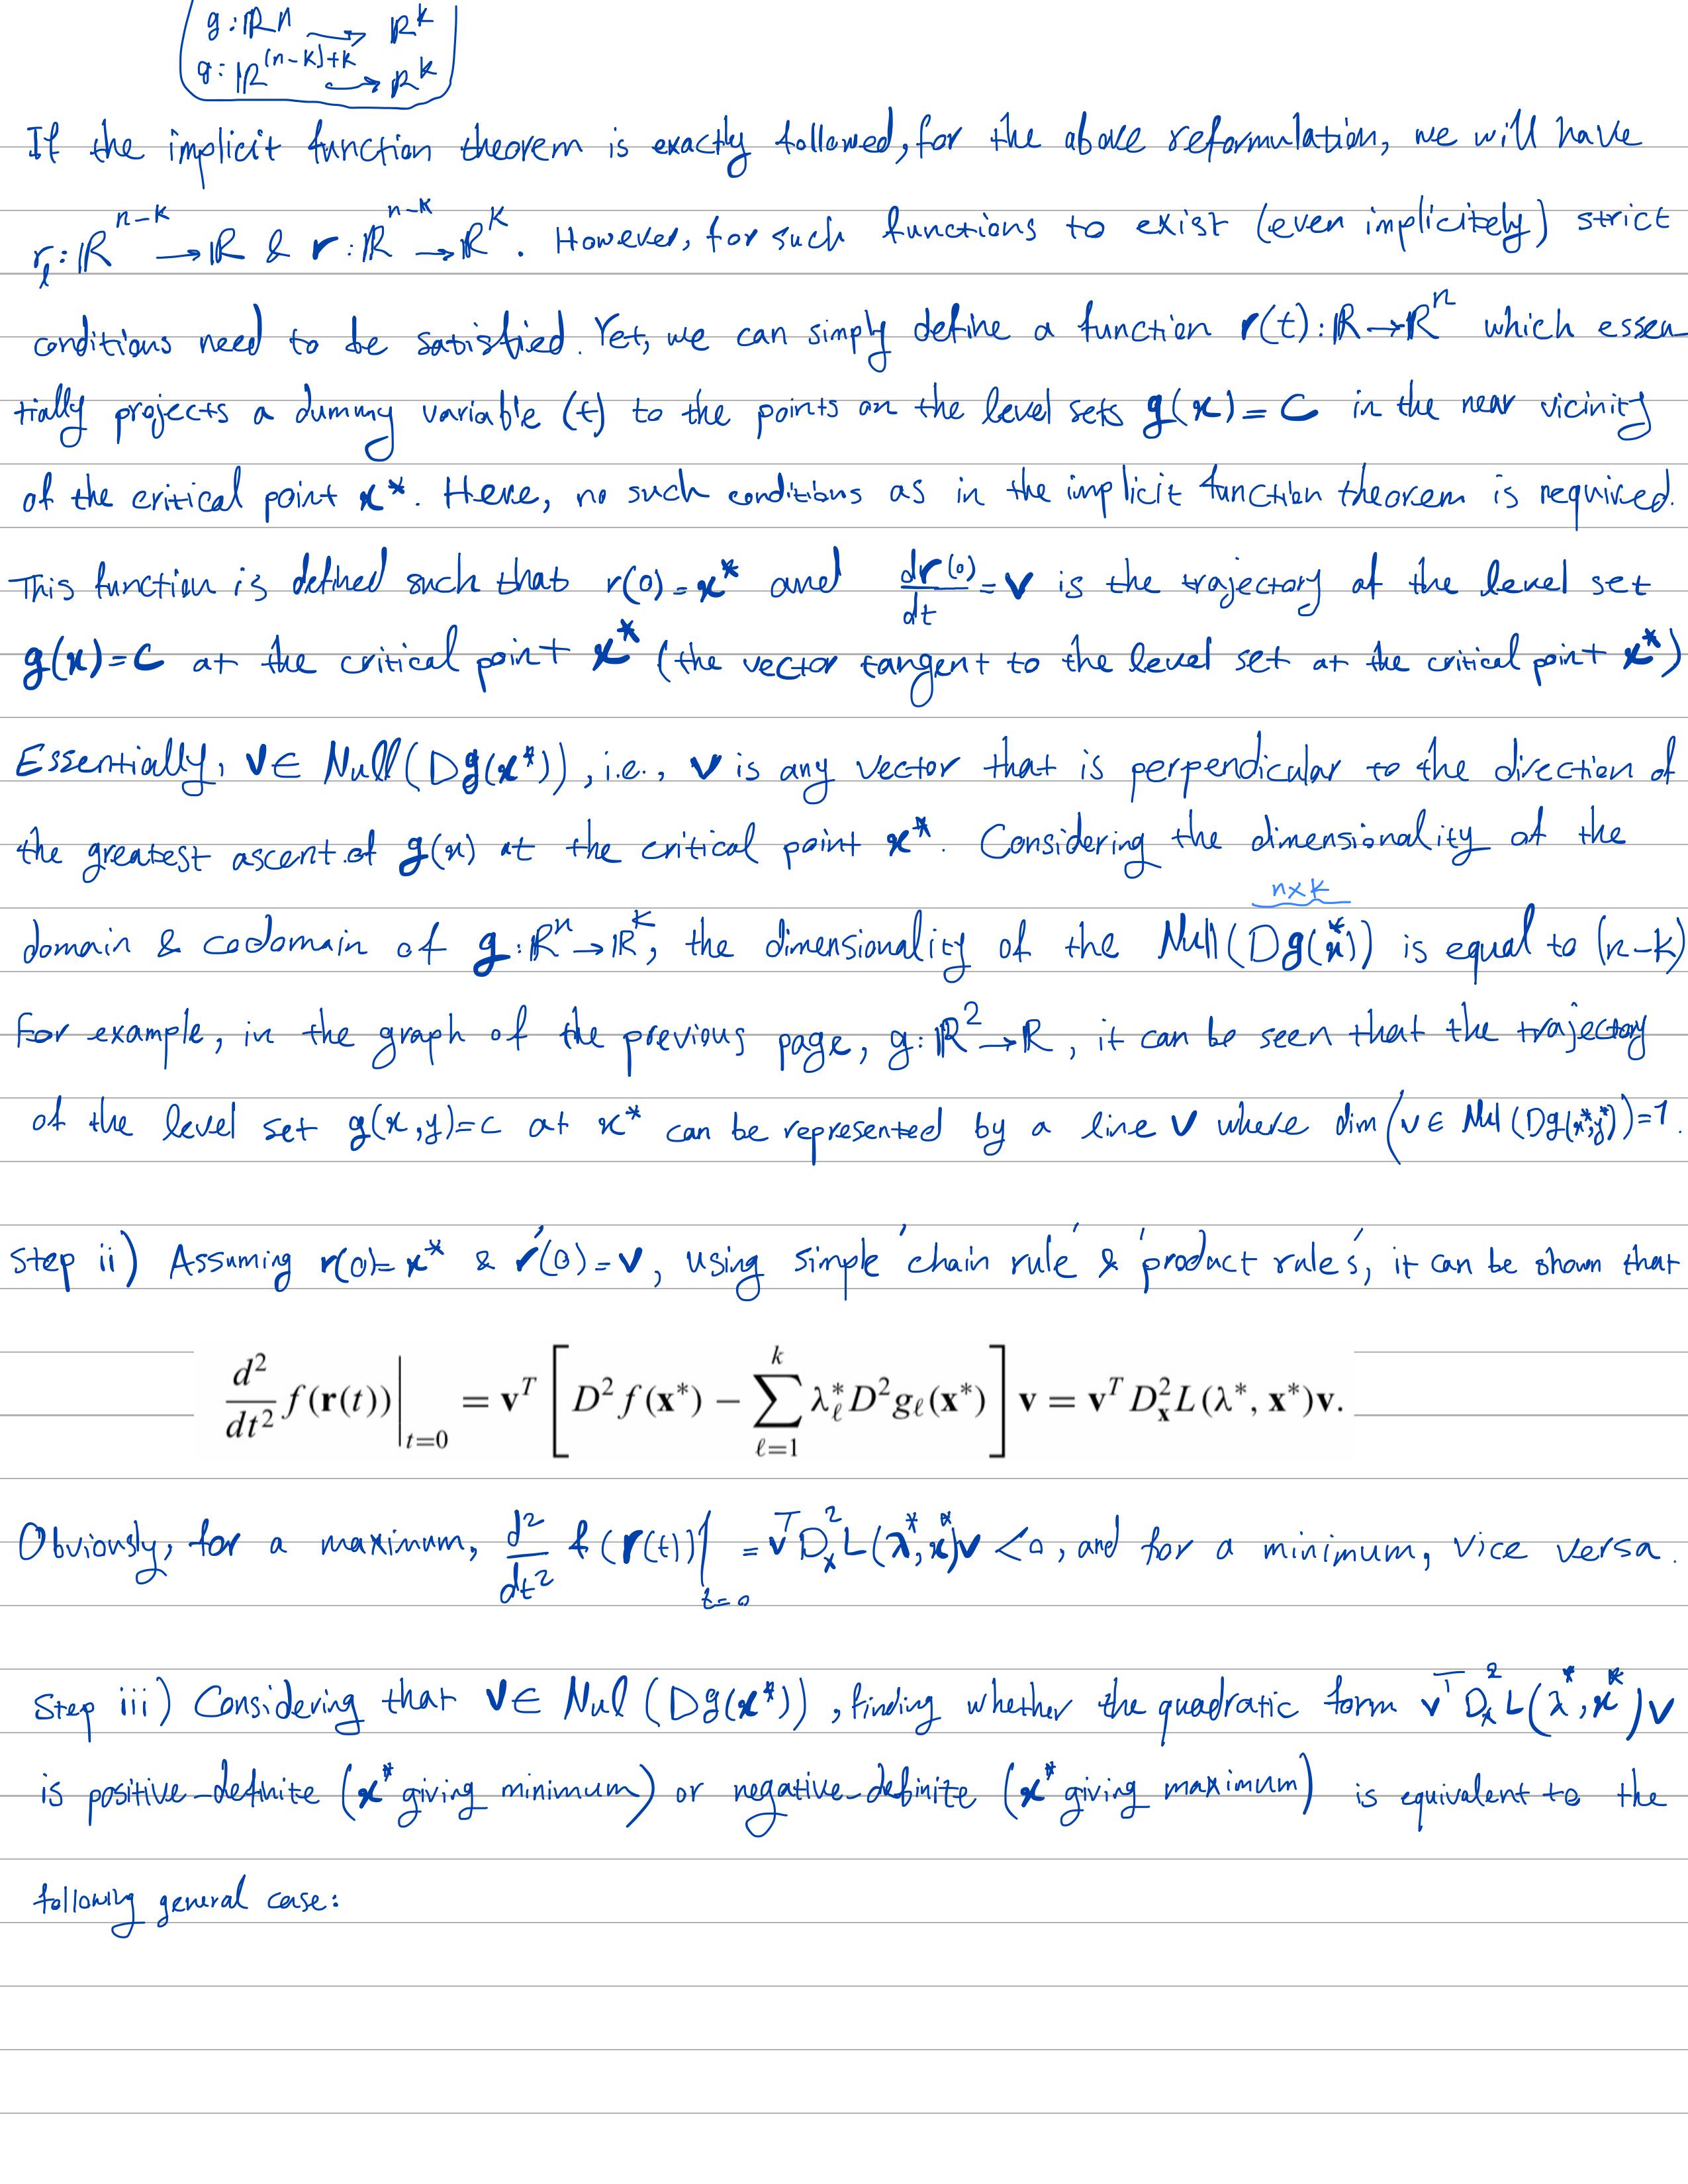 g : ℝn → ℝ^k
g : ℝ^(n-k)+k → ℝ^k
If the implicit function theorem is exactly followed, for the above reformulation, we will have
r_ℓ : ℝ^n-k → ℝ & r : ℝ^n-k → ℝ^k. However, for such functions to exist (even implicitely) strict
conditions need to be satisfied. Yet, we can simply define a function r(t) : ℝ → ℝ^n which essen
tially projects a dummy variable (t) to the points on the level sets g(x) = C in the near vicinity
of the critical point x*. Here, no such conditions as in the implicit function theorem is required.
This function is defined such that r(0) = x* and dr(0)/dt = v is the trajectory of the level set
g(x) = C at the critical point x* (the vector tangent to the level set at the critical point x*)
Essentially, v ∈ Null(Dg(x*)), i.e., v is any vector that is perpendicular to the direction of
the greatest ascent of g(x) at the critical point x*. Considering the dimensionality of the
n×k
domain & codomain of g : ℝ^n → ℝ^k, the dimensionality of the Null(Dg(x*)) is equal to (n-k)
For example, in the graph of the previous page, g : ℝ^2 → ℝ, it can be seen that the trajectory
of the level set g(x,y)=c at x* can be represented by a line v where dim(v ∈ Nul(Dg(x*,y*))=1.
Step ii) Assuming r(0)= x* & r′(0) = v, using simple 'chain rule' & 'product rules', it can be shown that
d²/dt² f(r(t))|_t=0 = v^T [D² f(x*) − ∑_ℓ=1^k λ*_ℓ D² g_ℓ(x*)] v = v^T D²_x L(λ*, x*)v.
Obviously, for a maximum, d²/dt² f(r(t))|_t=0 = v^T D²_x L(λ*, x*)v < 0, and for a minimum, vice versa.
Step iii) Considering that v ∈ Nul (Dg(x*)), finding whether the quadratic form v^T D²_x L(λ*, x*)v
is positive-definite (x* giving minimum) or negative-definite (x* giving maximum) is equivalent to the
following general case: